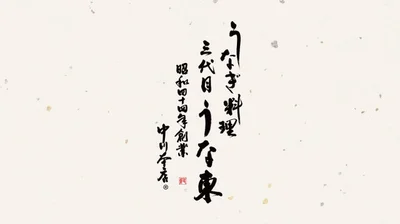 うなぎ料理
三代目うな東
昭和四十四年創業
中川本店